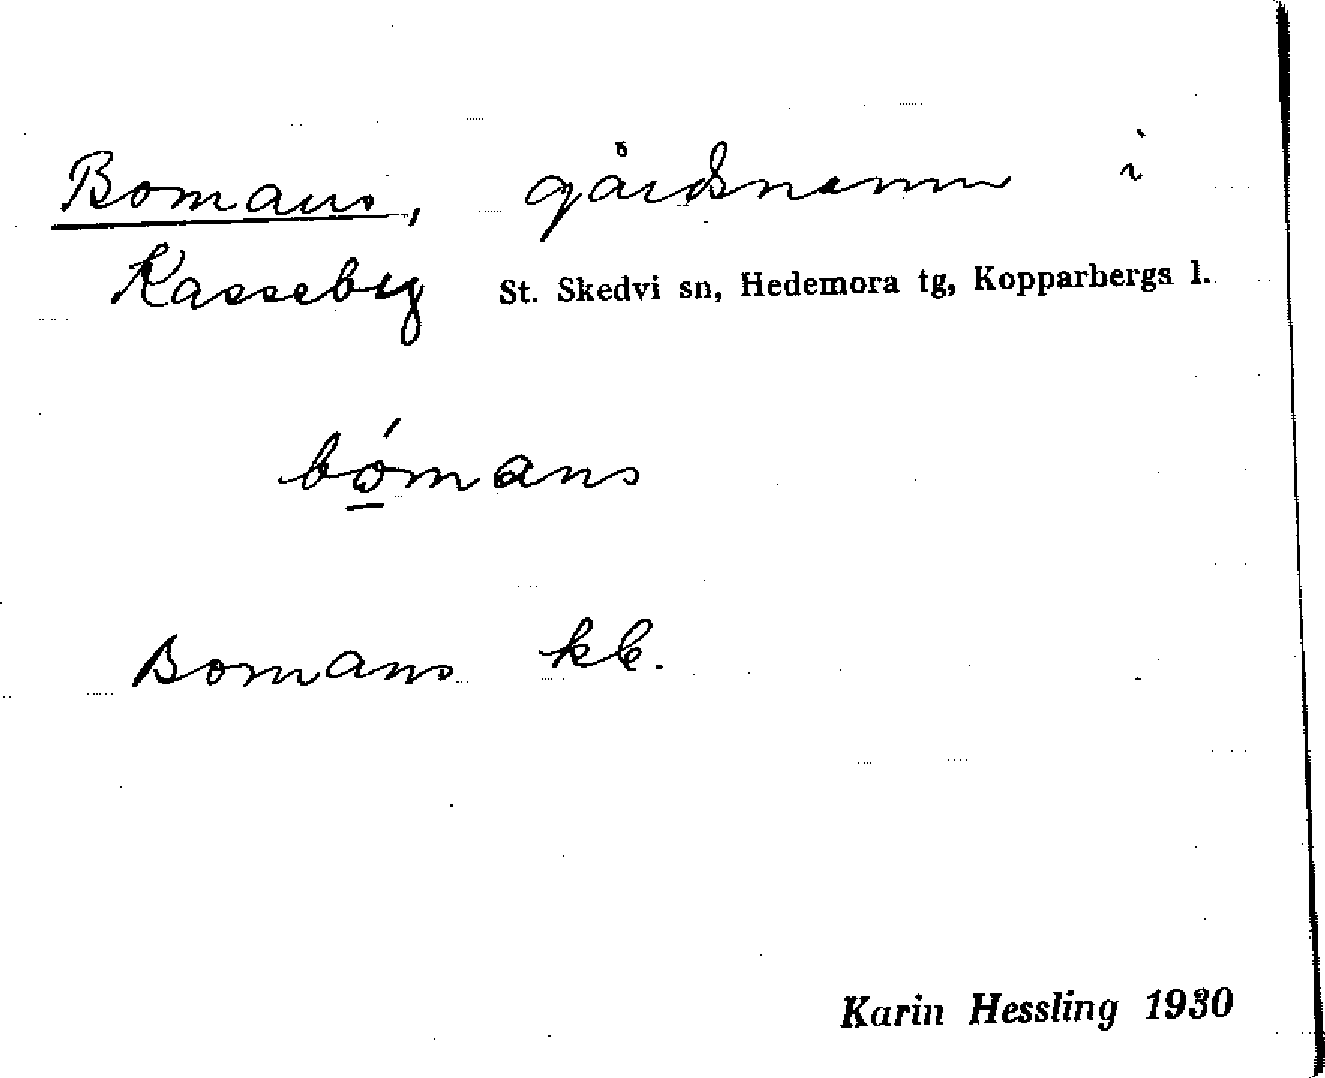 Bomans, gårdsnamn i
Kasseby St. Skedvi sn, Hedemora tg, Kopparbergs l.
bó̲mans
Bomans kb.
Karin Hessling 1930